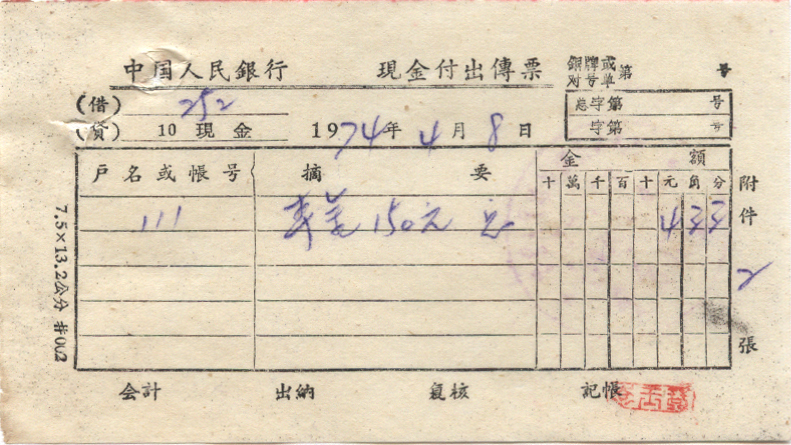 中国人民銀行 現金付出傳票
銅牌或
对号单 第 号
(借) 252
(貸) 10 現金
1974年4月8日
总字第 号
字第 号
戶名或帳号 摘要 金額
十 萬 千 百 十 元 角 分
111 150元 4 3 3
附件 2 張
会計 出納 复核 記帳
7.5×13.2公分 #002